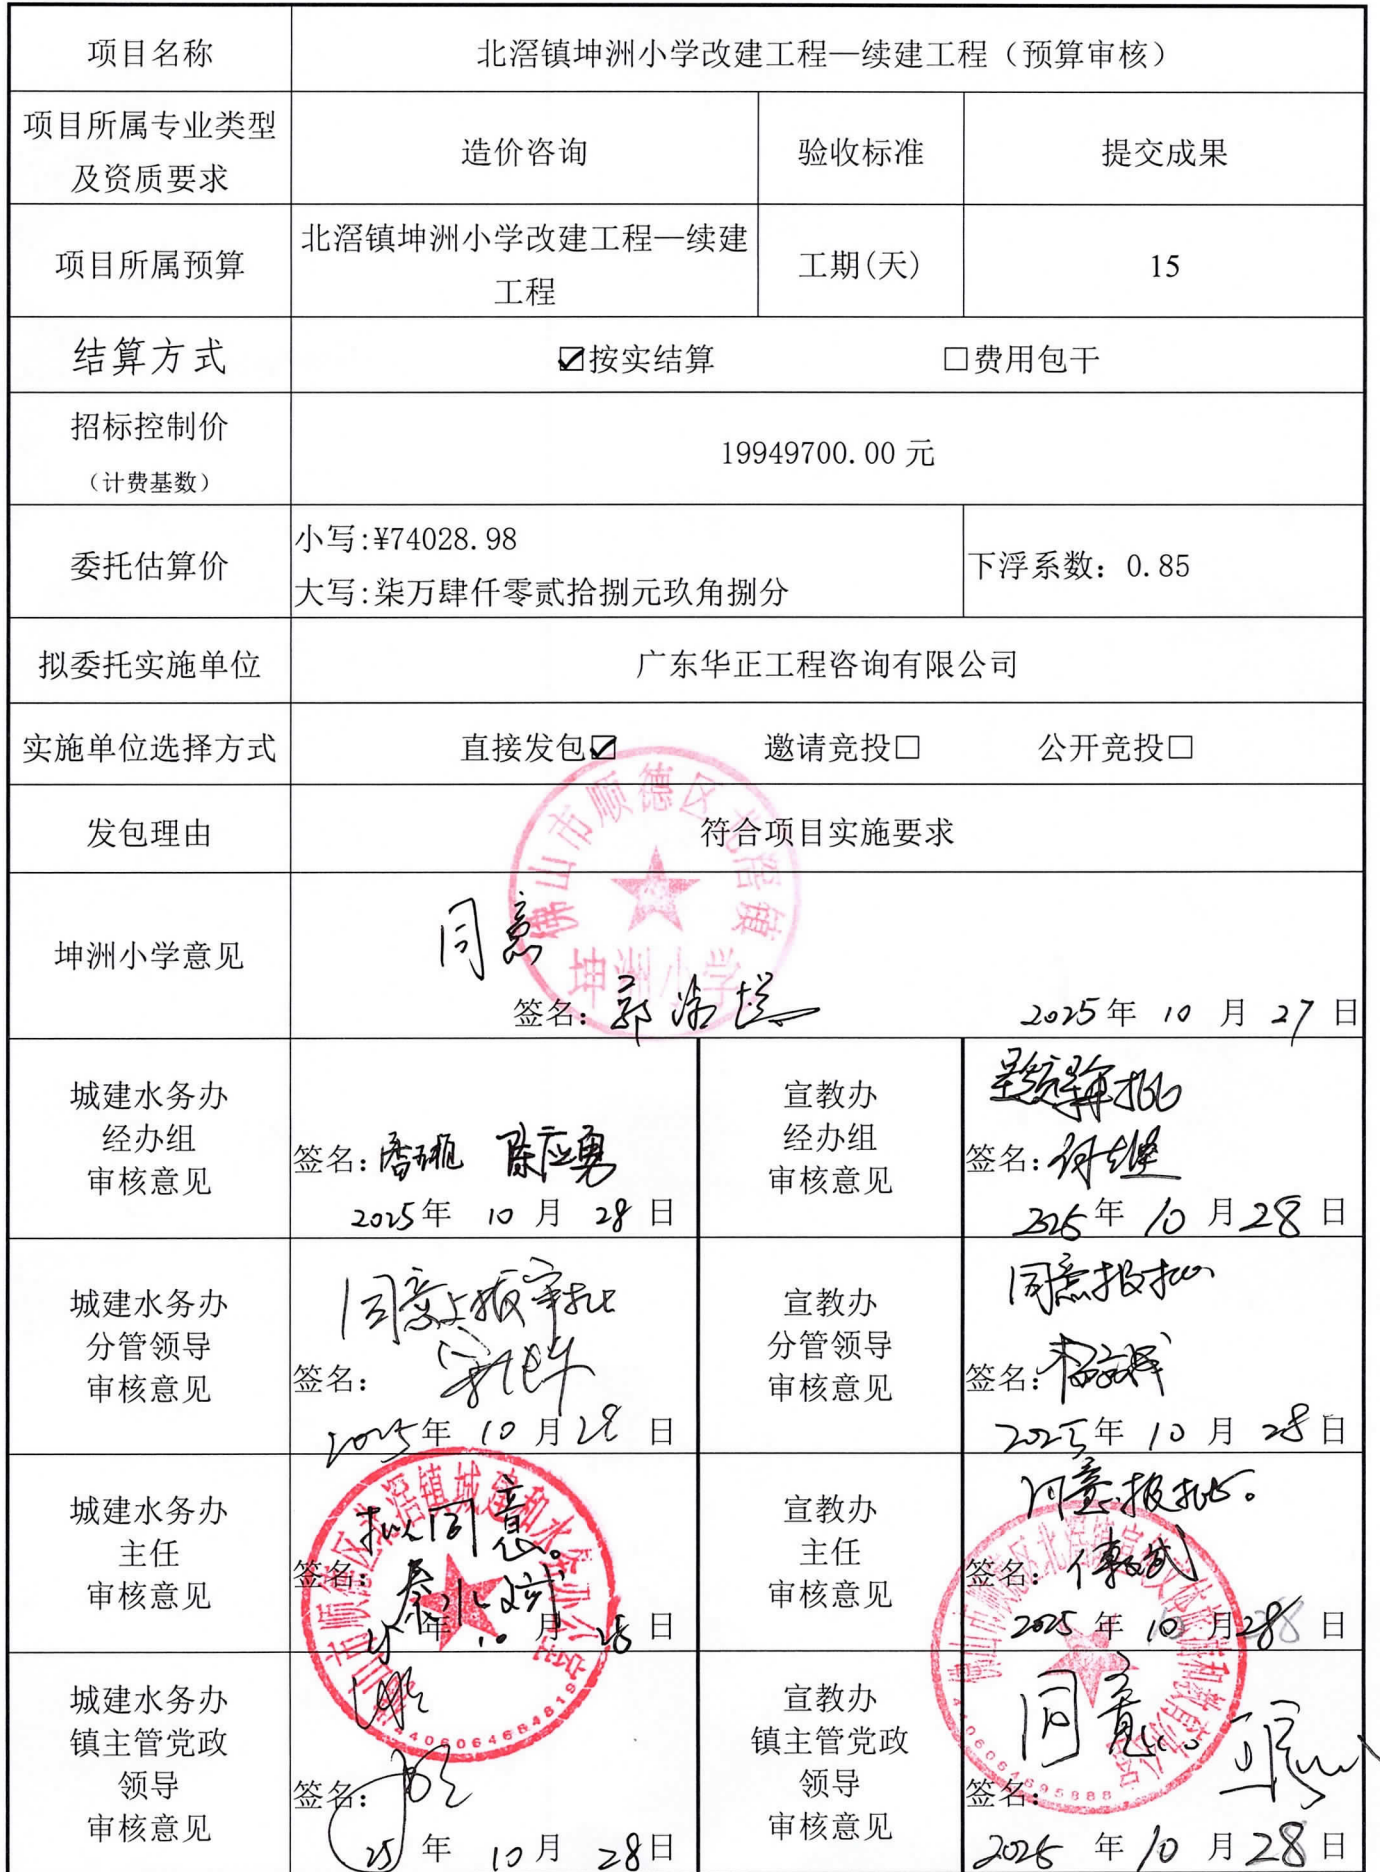 项目名称
北滘镇坤洲小学改建工程—续建工程（预算审核）
项目所属专业类型
及资质要求
造价咨询
验收标准
提交成果
项目所属预算
北滘镇坤洲小学改建工程—续建
工程
工期(天)
15
结算方式
☑按实结算 □费用包干
招标控制价
（计费基数）
19949700.00 元
委托估算价
小写:¥74028.98
大写:柒万肆仟零贰拾捌元玖角捌分
下浮系数：0.85
拟委托实施单位
广东华正工程咨询有限公司
实施单位选择方式
直接发包☑ 邀请竞投□ 公开竞投□
发包理由
符合项目实施要求
佛山市顺德区北滘镇
坤洲小学
坤洲小学意见
同意
签名：
2025年 10 月 27 日
城建水务办
经办组
审核意见
签名： 陈应勇
2025年 10 月 28 日
宣教办
经办组
审核意见
签名：
2025年 10 月 28 日
城建水务办
分管领导
审核意见
同意上报审批
签名：
2025年 10 月 28 日
宣教办
分管领导
审核意见
同意报批
签名：
2025年 10 月 28 日
城建水务办
主任
审核意见
拟同意。
签名：
25年 10 月 28 日
佛山市顺德区北滘镇城建和水务办公室
宣教办
主任
审核意见
同意报批。
签名：
2025 年 10 月 28 日
城建水务办
镇主管党政
领导
审核意见
签名：
25 年 10 月 28 日
宣教办
镇主管党政
领导
审核意见
同意
签名：
2025 年 10 月 28 日